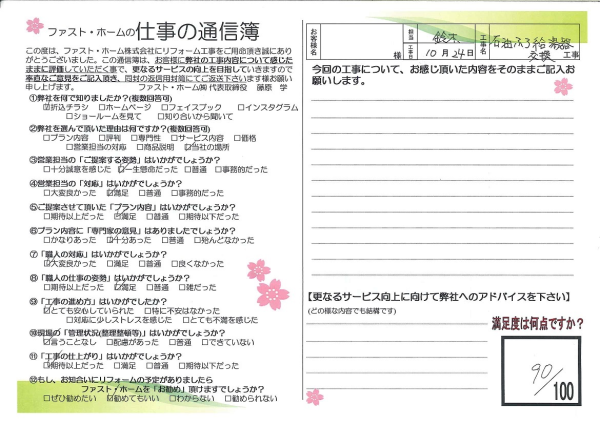 ファスト・ホームの仕事の通信簿
この度は、ファスト・ホーム株式会社にリフォーム工事をご用命頂き誠にあり
がとうございました。この通信簿は、お客様に弊社の工事内容について感じた
ままに評価していただく事で、更なるサービスの向上を目指していきますので
率直なご意見をご記入頂き、同封の返信用封筒にてご返送下さいます様お願い
申し上げます。 ファスト・ホーム㈱ 代表取締役 藤原 学
①弊社を何で知りましたか?(複数回答可)
☑折込チラシ □ホームページ □フェイスブック □インスタグラム
□ショールームを見て □知り合いから聞いて
②弊社を選んで頂いた理由は何ですか?(複数回答可)
□プラン内容 □評判 □専門性 □サービス内容 □価格
□営業担当の対応 □商品説明 ☑当社の場所
③営業担当の「ご提案する姿勢」はいかがでしょうか?
□十分誠意を感じた ☑一生懸命だった □普通 □事務的だった
④営業担当の「対応」はいかがでしょうか?
□大変良かった ☑満足 □普通 □事務的だった
⑤ご提案させて頂いた「プラン内容」はいかがでしょうか?
□期待以上だった ☑満足 □普通 □期待以下だった
⑥プラン内容に「専門家の意見」はありましたでしょうか?
□かなりあった ☑十分あった □普通 □殆んどなかった
⑦「職人の対応」はいかがでしょうか?
☑大変良かった □満足 □普通 □良くなかった
⑧「職人の仕事の姿勢」はいかがでしょうか?
□期待以上だった ☑満足 □普通 □雑だった
⑨「工事の進め方」はいかがでしたか?
☑とても安心していられた □特に不安はなかった
□対応に少しストレスを感じた □とても不満を感じた
⑩現場の「管理状況(整理整頓等)」はいかがでしょうか?
☑言うことなし □配慮があった □普通 □できていない
⑪「工事の仕上がり」はいかがでしょうか?
□期待以上だった ☑満足 □普通 □期待以下だった
⑫もし、お知合いにリフォームの予定がありましたら
ファスト・ホームを「お勧め」頂けますでしょうか?
□ぜひ勧めたい ☑勧めてもいい □わからない □勧められない
お客様名 様 担当 鈴木 工事日 10月24日 工事名 石油ふろ給湯器
交換 工事
今回の工事について、お感じ頂いた内容をそのままご記入お
願いします。
【更なるサービス向上に向けて弊社へのアドバイスを下さい】
(どの様な内容でも結構です)
満足度は何点ですか?
90/100